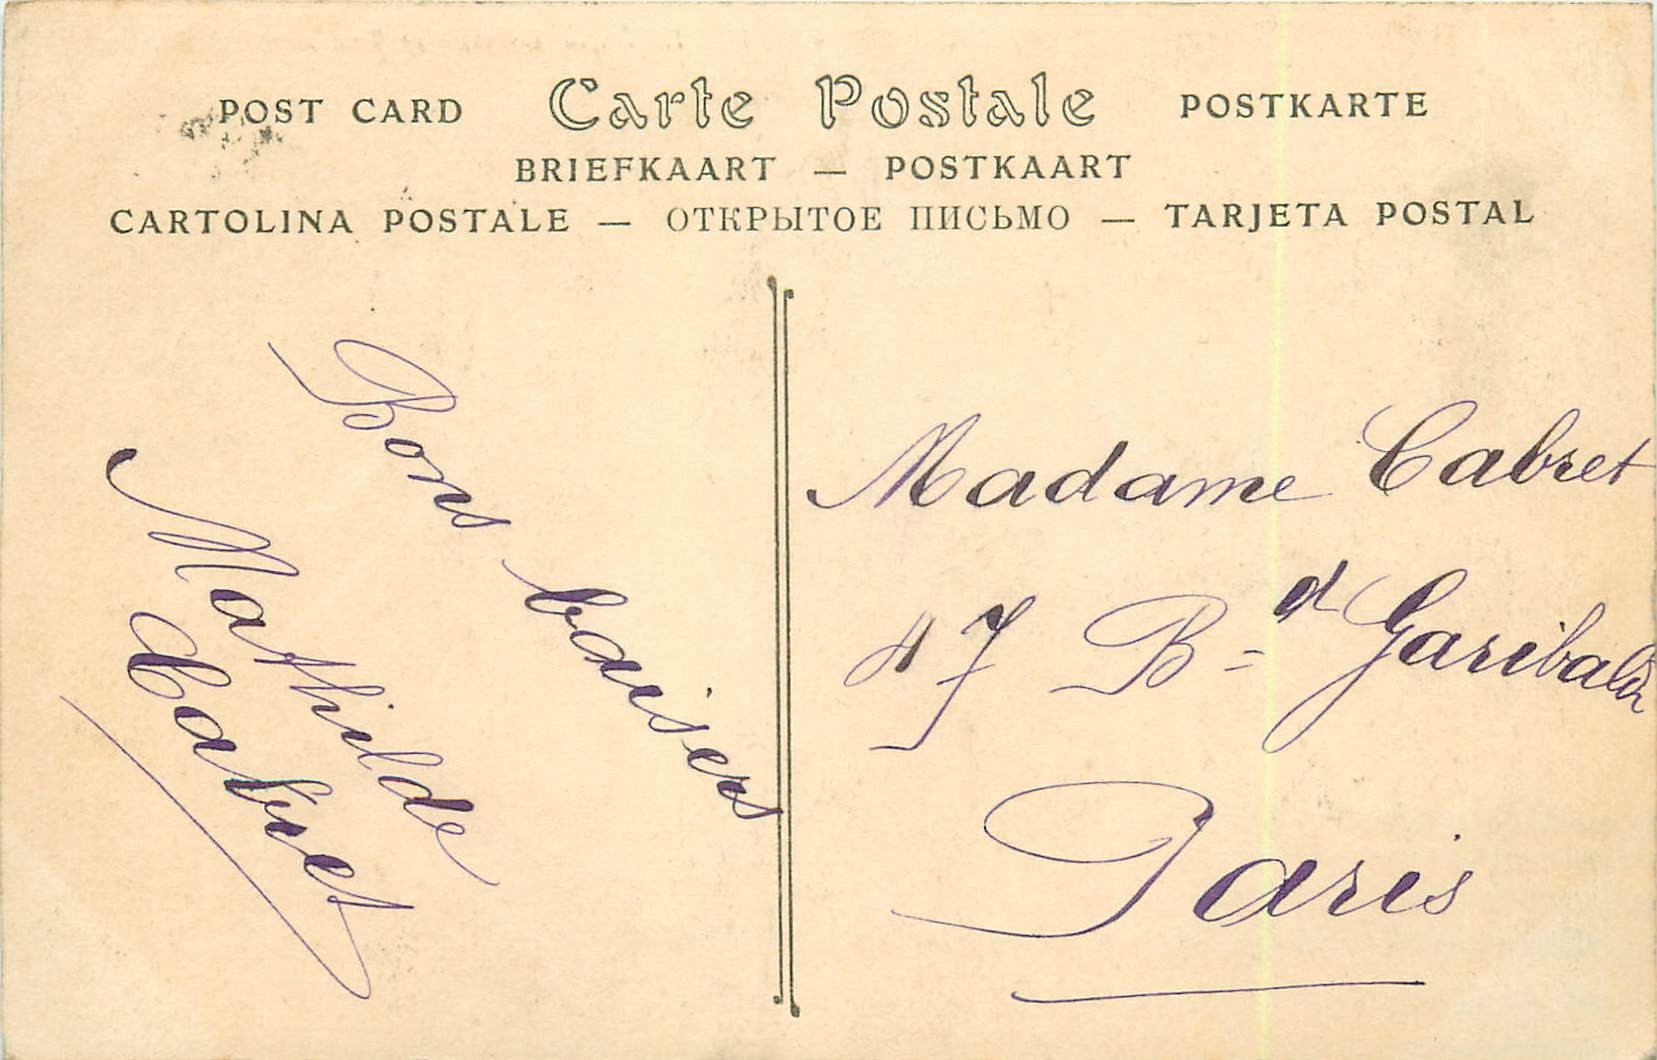 POST CARD Carte Postale POSTKARTE
BRIEFKAART — POSTKAART
CARTOLINA POSTALE — ОТКРЫТОЕ ПИСЬМО — TARJETA POSTAL
Bons baisers
Mathilde
Cabret
Madame Cabret
47 B=d Garibaldi
Paris